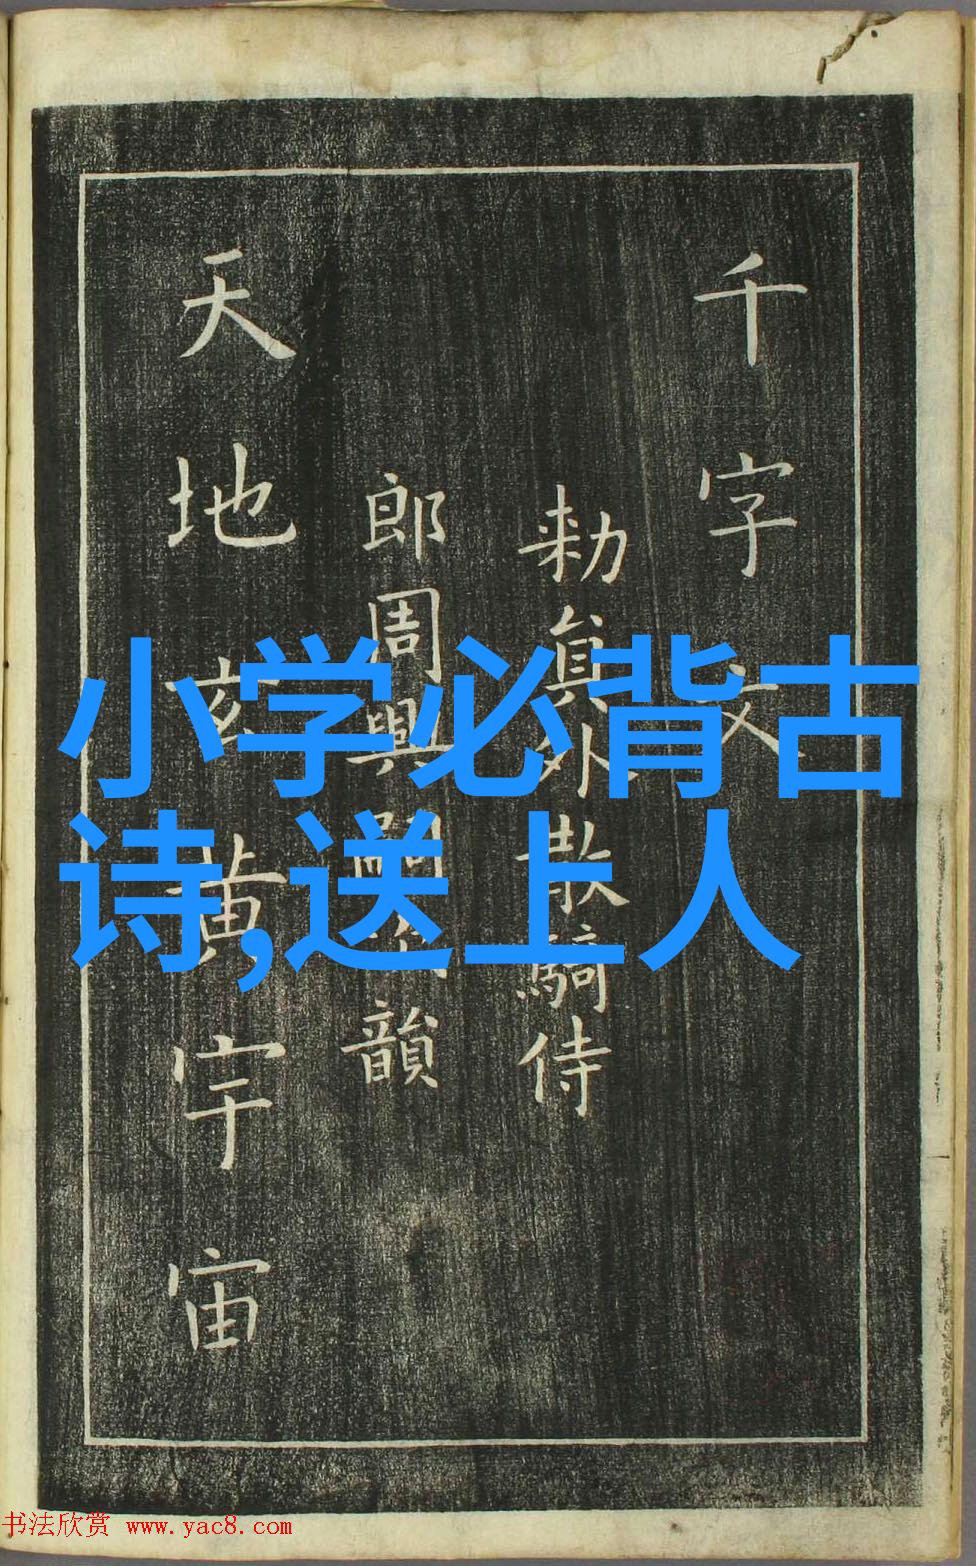 千字文
勑員外散騎侍
郎周興嗣次韻
天地玄黄宇宙
小学必背古
诗,送上人
书法欣赏 www.yac8.com